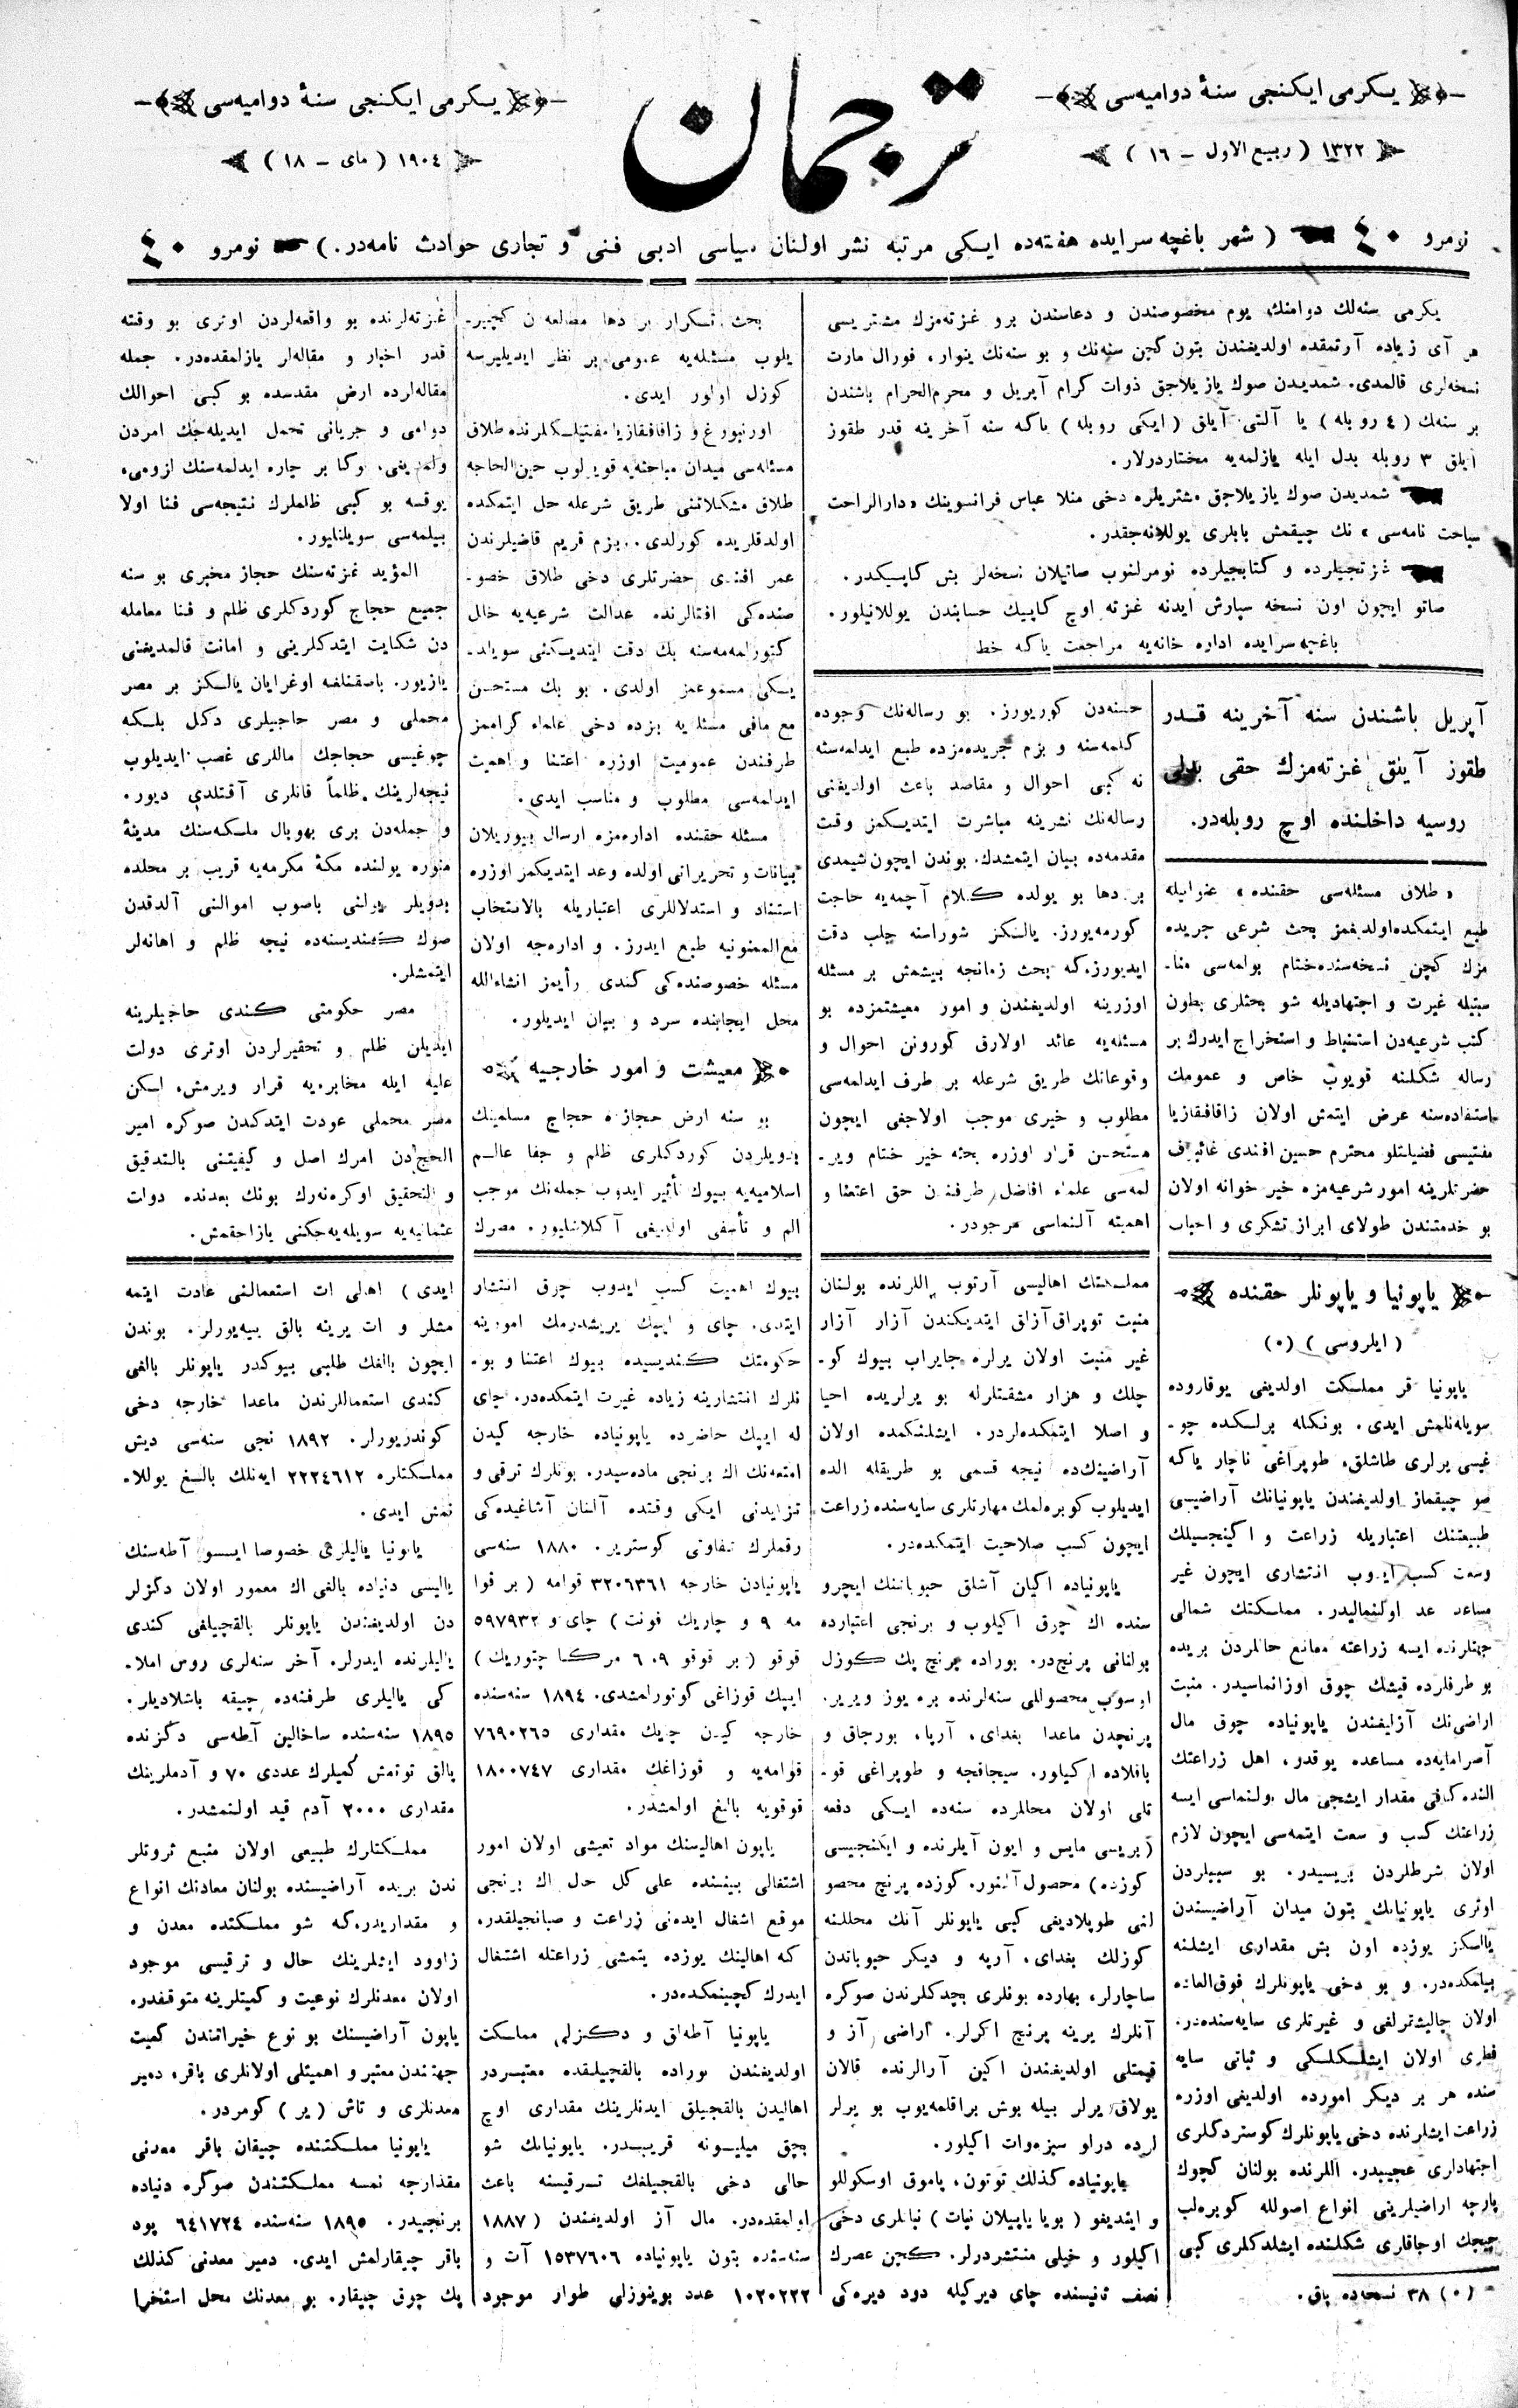 یكرمی ایكنجی سنۀ دوامیه‌سی
۱۳۲۲ ( ربیع الاول – ۱٦ )
ترجمان
یكرمی ایكنجی سنۀ دوامیه‌سی
۱۹۰٤ ( مای – ۱۸ )
نومرو ٤۰ ( شهر باغچه سرایده هفته‌ده ایكی مرتبه نشر اولنان سیاسی ادبی فنی و تجاری حوادث نامه‌در. ) نومرو ٤۰
یكرمی سنه‌لك دوامنك، یوم مخصوصندن و دعاسندن برو غزته‌مزك مشتریسی
هر آی زیاده آرتمقده اولدیغندن بتون كچن سنه‌نك و بو سنه‌نك ینوار، فورال مارت
نسخه‌لری قالمدی. شمدیدن صوك یازیلاجق ذوات كرام آپریل و محرم‌الحرام باشندن
بر سنه‌لك ( ٤ روبله ) یا آلتی آیلق ( ایكی روبله ) یاكه سنه آخرینه قدر طقوز
آیلق ۳ روبله بدل ایله یازلمه‌یه مختاردرلار.
شمدیدن صوك یازیلاجق مشتریلره دخی منلا عباس فرانسوینك «دارالراحت
سیاحت نامه‌سی» نك چیقمش بابلری یوللانه‌جقدر.
غزتجیلرده و كتابجیلرده نومرلنوب صاتیلان نسخه‌لر بش كاپیكدر.
صاتو ایچون اون نسخه سپارش ایدنه غزته اوچ كاپیك حسابندن یوللانیلور.
باغچه سرایده اداره خانه‌یه مراجعت یاكه خط
آپریل باشندن سنه آخرینه قدر
طقوز آیلق غزته‌مزك حقی بدلی
روسیه داخلنده اوچ روبله‌در.
« طلاق مسئله‌سی حقنده » عنوانیله
طبع ایتمكده‌اولدیغمز بحث شرعی جریده
مزك كچن نسخه‌سنده‌ختام بولمه‌سی منا-
سبتیله غیرت و اجتهادیله شو بحثلری بطون
كتب شرعیه‌دن استنباط و استخراج ایدرك بر
رساله شكلنه قویوب خاص و عمومك
استفاده‌سنه عرض ایتمش اولان زاقافقازیا
مفتیسی فضیلتلو محترم حسین افندی غائبوف
حضرتلرینه امور شرعیه‌مزه خیر خوانه اولان
بو خدمتندن طولای ابراز تشكری و احباب
حسنه‌دن كوریورز. بو رساله‌نك وجوده
كلمه‌سنه و بزم جریده‌مزده طبع ایدلمه‌سنه
نه كبی احوال و مقاصد باعث اولدیغنی
رساله‌نك نشرینه مباشرت ایتدیكمز وقت
مقدمه‌ده بیان ایتمشدك. بوندن ایچون شیمدی
بر دها بو یولده كلام آچمه‌یه حاجت
كورمه‌یورز. یالكز شوراسنه جلب دقت
ایدیورز.كه بحث زمانجه بیشمش بر مسئله
اوزرینه اولدیغندن و امور معیشتمزده بو
مسئله‌یه عائد اولارق كورونن احوال و
وقوعاتك طریق شرعله بر طرف ایدلمه‌سی
مطلوب و خیری موجب اولاجغی ایچون
مستحسن قرار اوزره بحثه خیر ختام ویر-
لمه‌سی علماء افاضل طرفندن حق اعتنا و
اهمیته آلنماسی مرجودر.
بحث تكرار بر دها مطالعه‌دن كچیر-
یلوب مسئله‌یه عمومی بر نظر ایدیلیرسه
كوزل اولور ایدی.
اورنبورغ و زاقافقازیا مفتیلكلرنده طلاق
مسئله‌سی میدان مباحثه‌یه قویولوب حین‌الحاجه
طلاق مشكلاتنی طریق شرعله حل ایتمكده
اولدقلریده كورلدی. بزم قریم قاضیلرندن
عمر افندی حضرتلری دخی طلاق خصو-
صنده‌كی افتالرنده عدالت شرعیه‌یه خالل
كتورلمه‌مه‌سنه بك دقت ایتدیكنی سویله-
یكی مسموعمز اولدی. بو بك مستحسن
مع مافی مسئله‌یه بزده دخی علماء كراممز
طرفندن عمومیت اوزره اعتنا و اهمیت
ایدلمه‌سی مطلوب و مناسب ایدی.
مسئله حقنده اداره‌مزه ارسال بیوریلان
بیانات و تحریراتی اولده وعد ایتدیكمز اوزره
استناد و استدلاللری اعتباریله بالانتخاب
مع‌الممنونیه طبع ایدرز. و اداره‌جه اولان
مسئله خصوصنده‌كی كندی رأیمز انشاءالله
محل ایجابنده سرد و بیان ایدیلور.
معیشت و امور خارجیه
بو سنه ارض حجازه حجاج مسلمینك
بدویلردن كوردكلری ظلم و جفا عالم
اسلامیه‌یه بیوك تأثیر ایدوب جمله‌نك موجب
الم و تأسفی اولدیغی آكلاشلیور. مصرك
غزته‌لرنده بو واقعه‌لردن اوتری بو وقته
قدر اخبار و مقاله‌لر یازلمقده‌در. جمله
مقاله‌لرده ارض مقدسده بو كبی احوالك
دوامی و جریانی تحمل ایدیله‌جك امردن
ولمدیغی، وكا بر چاره ایدلمه‌سنك لزومی،
یوقسه بو كبی ظلملرك نتیجه‌سی فنا اولا
بیلمه‌سی سویلنایور.
المؤید غزته‌سنك حجاز مخبری بو سنه
جمیع حجاج كوردكلری ظلم و فنا معامله
دن شكایت ایتدكلرینی و امانت قالمدیغنی
یازیور. باصقنلغه اوغرایان یالكز بر مصر
محملی و مصر حاجیلری دكل بلكه
چوغیسی حجاجك ماللری غصب ایدیلوب
نیجه‌لرینك ظلماً قانلری آقتلدی دیور.
و جمله‌دن بری بهوپال ملكه‌سنك مدینۀ
منوره یولنده مكۀ مكرمه‌یه قریب بر محلده
بدویلر یولنی باصوب اموالنی آلدقدن
صوك كندیسنه‌ده نیجه ظلم و اهانه‌لر
ایتمشلر.
مصر حكومتی كندی حاجیلرینه
ایدیلن ظلم و تحقیرلردن اوتری دولت
علیه ایله مخابره‌یه قرار ویرمش، لسكن
مصر محملی عودت ایتدكدن صوكره امیر
الحج‌دن امرك اصل و كیفیتنی بالتدقیق
و التحقیق اوكره‌نه‌رك بونك بعدنده دولت
عثمانیه‌یه سویله‌یه‌جكنی یازاجقمش.
یاپونیا و یاپونلر حقنده
( ایلروسی ) (۰)
یاپونیا قر مملكت اولدیغی یوقاروده
سویله‌نلمش ایدی. بونكله برلكده چو-
غیسی یرلری طاشلق، طوپراغی ناچار یاكه
صو چیقماز اولدیغندن یاپونیانك آراضیسی
طبیعتنك اعتباریله زراعت و اكینجیلك
وسعت كسب ایدوب انتشاری ایچون غیر
مساعد عد اولنمالیدر. مملكتك شمالی
جهتلرنده ایسه زراعته ممانع حاللردن بریده
بو طرفلرده قیشك چوق اوزانماسیدر. منبت
اراضی‌نك آزلیغندن یاپونیاده چوق مال
آصرامایه‌ده مساعده یوقدر، اهل زراعتك
النده كافی مقدار ایشجی مال بولنماسی ایسه
زراعتك كسب و سعت ایتمه‌سی ایچون لازم
اولان شرطلردن بریسیدر. بو سببلردن
اوتری یاپونیانك بتون میدان آراضیسندن
یالكز یوزده اون بش مقداری ایشلنه
بیلمكده‌در. و بو دخی یاپونلرك فوق‌العاده
اولان چالیشقرلغی و غیرتلری سایه‌سنده‌در.
فطری اولان ایشلكلكی و ثباتی سایه
سنده هر بر دیكر امورده اولدیغی اوزره
زراعت ایشلرنده دخی یاپونلرك كوستردكلری
اجتهاداری عجیبدر. اللرنده بولنان كچوك
پارچه اراضیلرینی انواع اصولله كوبره‌لب
چیچك اوجاقاری شكلنده ایشلدكلری كبی
(۰) ۳۸ نسخه‌ده باق.
مملكتك اهالیسی آرتوب اللرنده بولنان
منبت توپراق آزلق ایتدیكندن آزار آزار
غیر منبت اولان یرلره جایراب بیوك كو-
چلك و هزار مشقتلرله بو یرلریده احیا
و اصلا ایتمكده‌لردر. ایشلنكمده اولان
آراضینك‌ده نیجه قسمی بو طریقله الده
ایدیلوب كوبره‌لمك مهارتلری سایه‌سنده زراعت
ایچون كسب صلاحیت ایتمكده‌در.
یاپونیاده اكیلن آشلق حبوباتنك ایچرو
سنده اك چوق اكیلوب و برنجی اعتبارده
بولنانی پرنچ‌در. بوراده پرنچ پك كوزل
اوسوب محصوللی سنه‌لرنده بره یوز ویریر.
پرنچدن ماعدا بغدای، آرپا، بورجاق و
باقلاده اكیلور. سیجاقجه و طوپراغی قو-
تلی اولان محاللرده سنه‌ده ایكی دفعه
( بریسی مایس و ایون آیلرنده و ایكنجیسی
كوزده ) محصول آلنور. كوزده پرنچ محصو
لنی طوپلادیغی كبی یاپونلر آنك محللنه
كوزلك بغدای، آرپه و دیكر حبوباندن
ساچارلر، بهارده بونلری بچدكلرندن صوكره
آنلرك یرینه پرنچ اكرلر. اراضی آز و
قیمتلی اولدیغندن اكین آرالرنده قالان
یولاق یرلر بیله بوش براقلمه‌یوب بو یرلر
لرده درلو سبزه‌وات اكیلور.
یاپونیاده كذلك توتون، پاموق اوسكوللو
و ایندیغو ( بویا یاپیلان نبات ) نباتلری دخی
اكیلور و خیلی منتشردرلر. كچن عصرك
نصف ثانیسنده چای دیركیله دود دیره‌كی
بیوك اهمیت كسب ایدوب چوق انتشار
ایتدی. چای و ایپك یریشدرمك امورینه
حكومتك كندیسیده بیوك اعتنا و بو-
نلرك انتشارینه زیاده غیرت ایتمكده‌در. چای
له ایپك حاضرده یاپونیاده خارجه كیدن
امتعه‌نك اك برنجی ماده‌سیدر. بونلرك ترقی و
تزایدنی ایكی وقتده آلنان آشاغیده‌كی
رقملرك تفاوتی كوستریر. ۱۸۸۰ سنه‌سی
یاپونیادن خارجه ۳۲۰٦۳٦۱ قوامه ( بر قوا
مه ۹ و چاریك فونت ) چای و ۵۹۷۹۳۲
قوقو ( بر قوقو ۹، ٦ مركا چتوریك )
ایپك قوزاغی كوتورلمشدی. ۱۸۹٤ سنه‌سنده
خارجه كیدن چایك مقداری ۷٦۹۰۲٦۵
قوامه‌یه و قوزاغك مقداری ۱۸۰۰۷٤۷
قوقویه بالغ اولمشدر.
یاپون اهالیسنك مواد تعیشی اولان امور
اشتغالی بینسنده علی كل حال اك برنجی
موقع اشغال ایده‌نی زراعت و صبانجیلقدر،
كه اهالینك یوزده یتمشی زراعتله اشتغال
ایدرك كچینمكده‌در.
یاپونیا آطه‌لق و دكزلی مملكت
اولدیغندن بوراده بالقجیلقده معتبردر
اهالیدن بالقجیلق ایدنلرینك مقداری اوچ
بچق میلیونه قریبدر. یاپونیانك شو
حالی دخی بالقجیلغك ترقیسنه باعث
اولمقده‌در. مال آز اولدیغندن ( ۱۸۸۷
سنه‌سنده بتون یاپونیاده ۱۵۳۷٦۰٦ آت و
۱۰۲۰۲۲۲ عدد بوینوزلی طوار موجود
ایدی ) اهالی ات استعمالنی عادت ایتمه
مشلر و ات یرینه بالق بیه‌یورلر. بوندن
ایچون بالغك طلبی بیوكدر یاپونلر بالغی
كندی استعماللرندن ماعدا خارجه دخی
كوندریورلر. ۱۸۹۲ نجی سنه‌سی دیش
مملكتلره ۲۲۲٤٦۱۲ ایه‌نلك بالغ یوللا-
نمش ایدی.
یاپونیا یالیلرقی خصوصا ایسسو آطه‌سنك
یالیسی دنیاده بالغی اك معمور اولان دكزلر
دن اولدیغندن یاپونلر بالقچیلغی كندی
یالیلرنده ایدرلر. آخر سنه‌لری روس املا-
كی یالیلری طرفنه‌ده چیقه باشلادیلر.
۱۸۹۵ سنه‌سنده ساخالین آطه‌سی دكزنده
بالق توتمش كمیلرك عددی ۷۰ و آدملرینك
مقداری ۲۰۰۰ آدم قید اولنمشدر.
مملكتلرك طبیعی اولان منبع ثروتلر
ندن بریده آراضیسنده بولنان معادنك انواع
و مقداریدر.كه شو مملكتده معدن و
زاوود ایشلرینك حال و ترقیسی موجود
اولان معدنلرك نوعیت و كمیتلرینه متوقفدر.
یاپون آراضیسنك بو نوع خیراتندن كمیت
جهتندن معتبر و اهمیتلی اولانلری باقر، دمیر
معدنلری و تاش ( یر ) كومردر.
یاپونیا مملكتنده چیقان باقر معدنی
مقدارجه نمسه مملكتندن صوكره دنیاده
برنجیدر. ۱۸۹۵ سنه‌سنده ٦٤۱۷۲٤ پود
باقر چیقارلمش ایدی. دمیر معدنی كذلك
پك چوق چیقار. بو معدنك محل استخرا